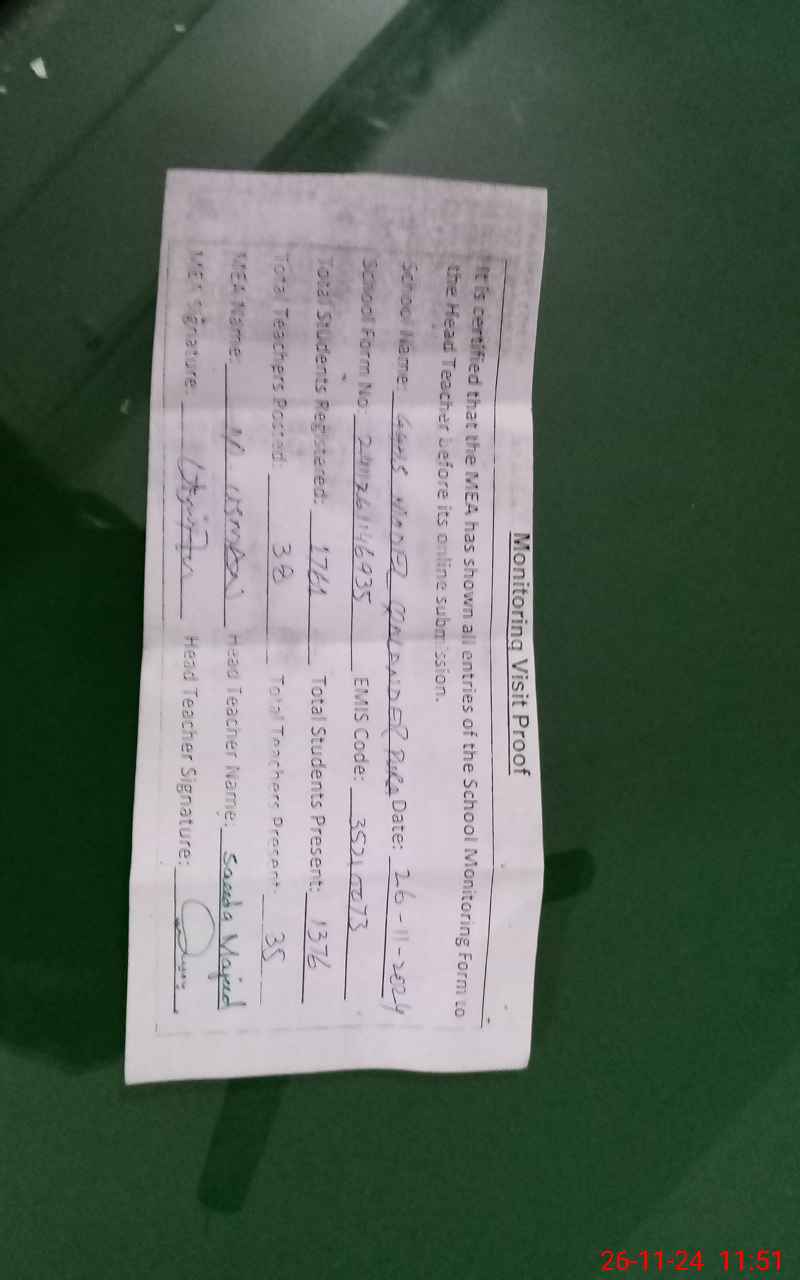 Monitoring Visit Proof
It is certified that the MEA has shown all entries of the School Monitoring Form to
the Head Teacher before its online submission.
School Name: GGHS MODEL QALANDER PURA Date: 26-11-2024
School Form No: EMIS Code: 35210073
Total Students Registered: 1761 Total Students Present: 1376
Total Teachers Posted: 38 Total Teachers Present: 35
MEA Name: M USMAN Head Teacher Name: Saeeda Majeed
MEA Signature: Head Teacher Signature:
26-11-24 11:51